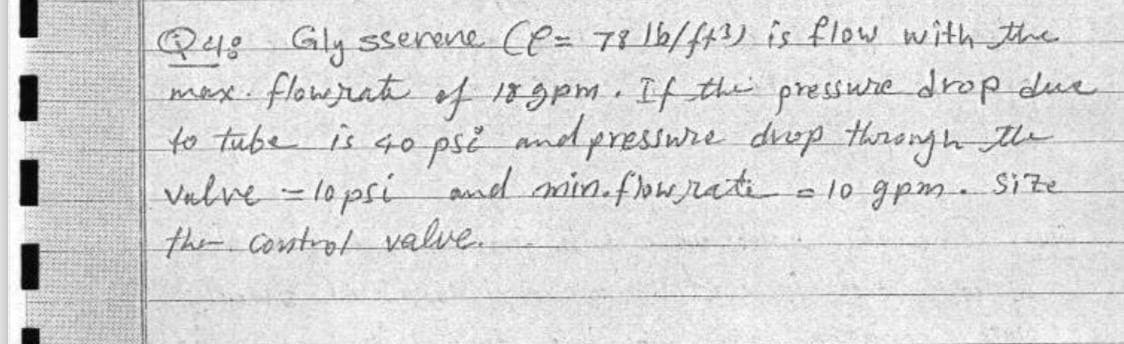 Q4: Gly sserene (ρ= 78 lb/ft3) is flow with the
max. flowrate of 18 gpm. If the pressure drop due
to tube is 40 psi and pressure drop through the
valve = 10 psi and min. flow rate = 10 gpm. Size
the control valve.